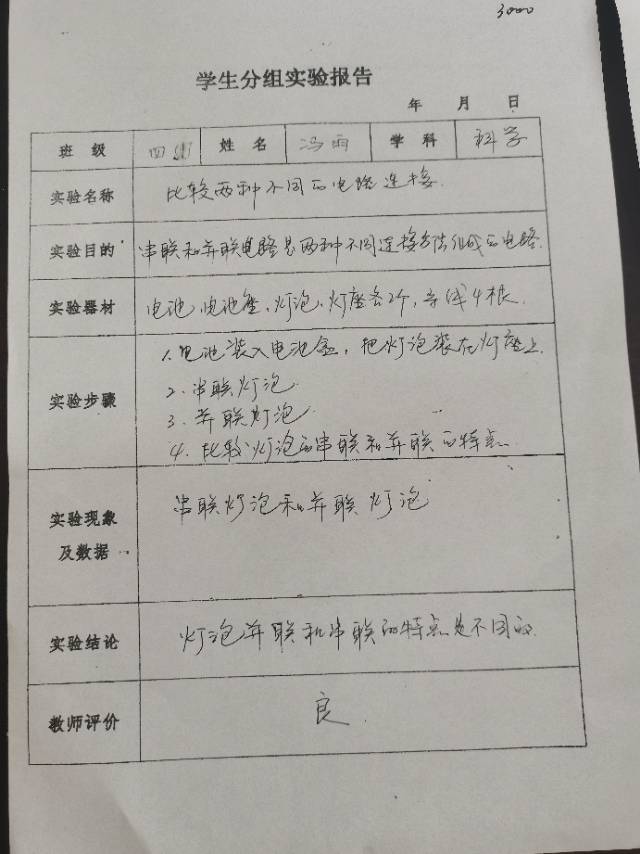 3000
学生分组实验报告
年 月 日
班 级 四 姓 名 冯雨 学 科 科学
实验名称 比较两种不同的电路连接.
实验目的 串联和并联电路是两种不同连接方法组成的电路.
实验器材 电池、电池盒、灯泡、灯座各2个,导线4根.
1.电池装入电池盒,把灯泡装在灯座上.
2.串联灯泡.
实验步骤
3.并联灯泡.
4.比较灯泡的串联和并联的特点.
实验现象 串联灯泡和并联灯泡
及数据
实验结论 灯泡并联和串联的特点是不同的.
教师评价 良